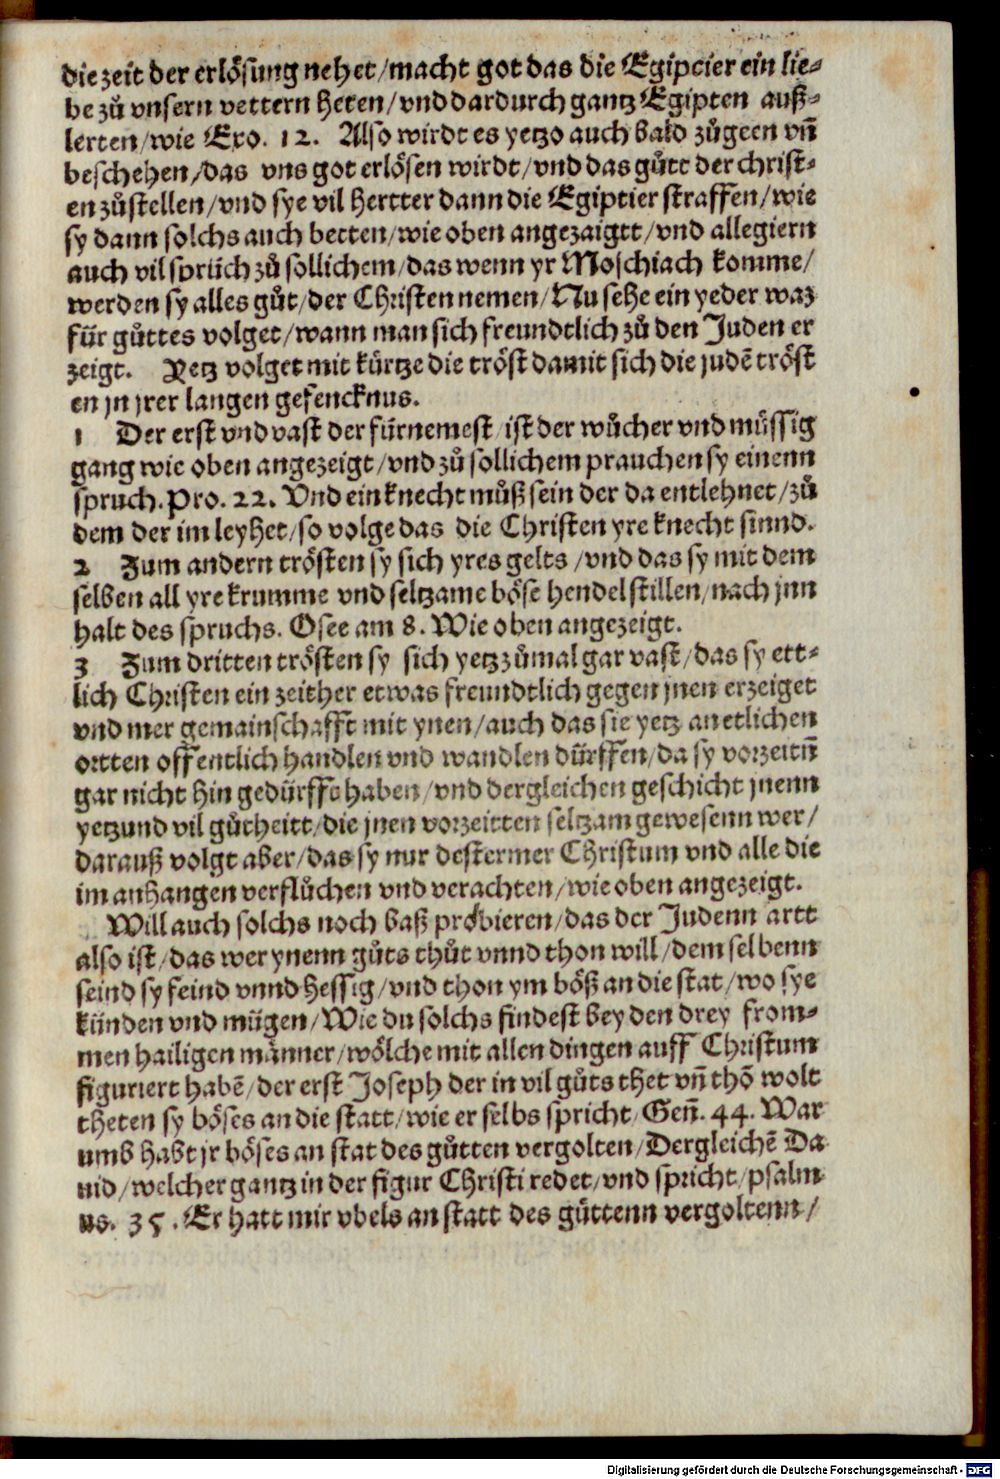 die zeit der erlösung nehet/macht got das die Egipcier ein lie-
be zů vnsern vettern heten/vnd dardurch gantz Egipten auß-
lerten/wie Exo. 12. Also wirdt es yetzo auch bald zůgeen vn̄
beschehen/das vns got erlösen wirdt/vnd das gůtt der christ-
en zůstellen/vnd sye vil hertter dann die Egiptier straffen/wie
sy dann solchs auch betten/wie oben angezaigtt/vnd allegiern
auch vil sprüch zů sollichem/das wenn yr Moschiach komme/
werden sy alles gůt/der Christen nemen/Nu sehe ein yeder waz
für gůttes volget/wann man sich freundtlich zů den Juden er
zeigt. Yetz volget mit kürtze die tröst damit sich die judē tröst
en jn jrer langen gefencknus.
1 Der erst vnd vast der fürnemest ist der wůcher vnd müssig
gang wie oben angezeigt/vnd zů sollichem prauchen sy einenn
spruch. Pro. 22. Vnd ein knecht můß sein der da entlehnet/zů
dem der im leyhet/so volge das die Christen yre knecht sinnd.
2 Zum andern trösten sy sich yres gelts/vnd das sy mit dem
selben all yre krumme vnd seltzame böse hendel stillen/nach jnn
halt des spruchs. Osee am 8. Wie oben angezeigt.
3 Zum dritten trösten sy sich yetz zůmal gar vast/das sy ett-
lich Christen ein zeither etwas freundtlich gegen jnen erzeiget
vnd mer gemainschafft mit ynen/auch das sie yetz an etlichen
ortten offentlich handlen vnd wandlen dürffen/da sy vorzeitn̄
gar nicht hin gedürffe haben/vnd dergleichen geschicht jnenn
yetzund vil gůtheitt/die jnen vorzeitten seltzam gewesenn wer/
darauß volgt aber/das sy nur dester mer Christum vnd alle die
im anhangen verflůchen vnd verachten/wie oben angezeigt.
Will auch solchs noch baß probieren/das der Judenn artt
also ist/das wer ynenn gůts thůt vnnd thon will/dem selbenn
seind sy feind vnnd hessig/vnd thon ym böß an die stat/wo sye
künden vnd mügen/Wie du solchs findest bey den drey from-
men hailigen männer/wölche mit allen dingen auff Christum
figuriert habē/der erst Joseph der in vil gůts thet vn̄ thō wolt
theten sy böses an die statt/wie er selbs spricht/Gen̄. 44. War
umb habt jr böses an stat des gůtten vergolten/Dergleichē Da
uid/welcher gantz in der figur Christi redet/vnd spricht/psalm
us. 35. Er hatt mir vbels an statt des gůttenn vergoltenn/
Digitalisierung gefördert durch die Deutsche Forschungsgemeinschaft - DFG